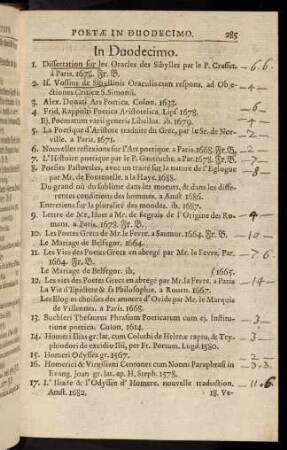 POETÆ IN DUODECIMO. 285
In Duodecimo.
1. Dissertation sur les Oracles des Sibylles par le P. Crasset. — 6. 6.
à Paris. 1678. Fr. B.
2. If. Vossius de Sibyllinis Oraculis cum respons. ad Obje-
ctiones Criticæ S. Simonii.
3. Alex. Donati Ars Poetica. Colon. 1633. — 4 —
4. Frid. Rappolti Poetica Aristotelica. Lips. 1678. — 3 —
Ej. Poematum varii generis Libellus. ib. 1679. — 4 —
5. La Poetique d'Aristote traduite du Grec, par le Sr. de Nor-
ville. à Paris. 1671.
6. Nouvelles reflexions sur l'Art poetique. à Paris. 1668. Fr. B.
7. L'Histoire poetique par le P. Gautruche. à Par. 1678. Fr. B. — 7 —
8. Poesies Pastorales, avec un traité sur la nature de l'Eglogue
par Mr. de Fontenelle. à la Haye. 1688.
Du grand ou du sublime dans les mœurs, & dans les diffe-
rentes conditions des hommes, à Amst. 1686.
Entretiens sur la pluralité des mondes. ib. 1687.
9. Lettre de Mr. Huet à Mr. de Segrais de l'Origine des Ro- — 4 —
mans. à Paris. 1678. Fr. B.
10. Les Poetes Grecs de Mr. le Fevre, à Saumur. 1664. Fr. B. — 10 —
Le Mariage de Belfegor. 1664.
11. Les Vies des Poetes Grecs en abregé par Mr. le Fevre, Par. — 7 6.
1664. Fr. B.
Le Mariage de Belfegor. ib. (1665.
12. Les vies des Poetes Grecs en abregé par Mr. la Fevre à Paris — 14 —
La Vie d'Epictete & sa Philosophie. à Rouen. 1667.
Les Elog es choisies des amours d'Ovide par Mr. le Marquis
de Villennes. à Paris. 1668.
13. Buchleri Thesaurus Phrasium Poeticarum cum ej. Institu- — 3 —
tione poetica. Colon. 1624.
14. Homeri Ilias gr. lat. cum Coluthi de Helenæ raptu, & Try- — 3 —
phiodori de excidio Ilii, per Fr. Portum. Lugd. 1580.
15. Homeri Odyssea gr. 1567. — 2 —
16. Homerici & Virgiliani Centones cum Nonni Paraphrasi in — 3 —
Evang. Joan. gr. lat. ap. H. Steph. 1578.
17. L'Iliade & l'Odyssée d'Homere, nouvelle traduction. — 11. 6
Amst. 1682. 18. Ve-